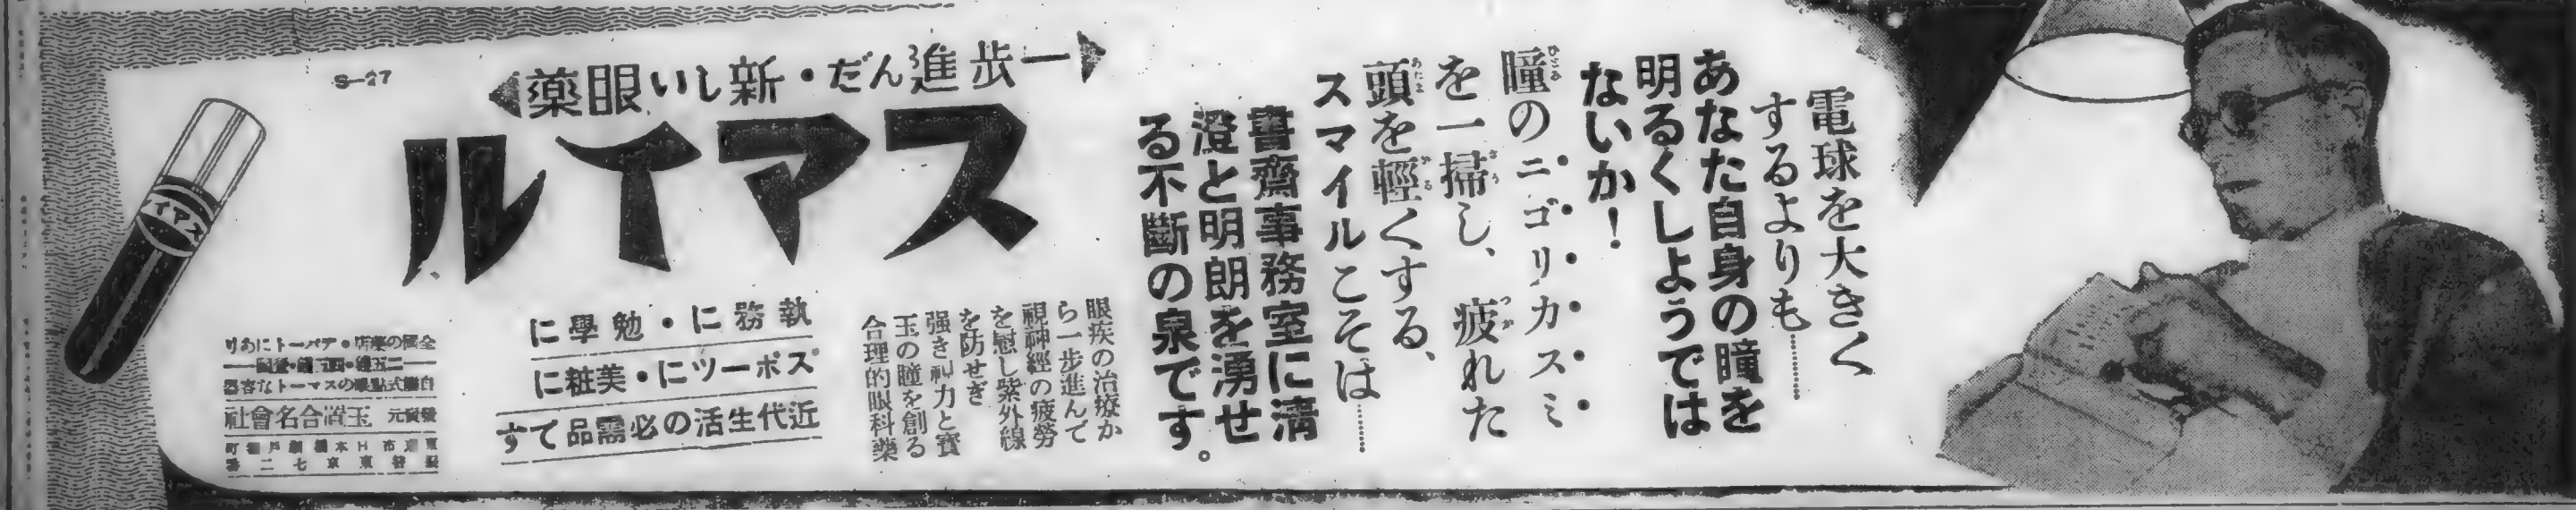 電球を大きく
するよりも………
あなた自身の瞳を
明るくしようでは
ないか！
瞳のニゴリカスミ
を一掃し、疲れた
頭を輕くする、
スマイルこそは………
書齋事務室に淸
澄と明朗を湧せ
る不斷の泉です。
一歩進んだ・新しい眼藥
スマイル
S-27
眼疾の治療か
ら一步進んで
視神經の疲勞
を慰し紫外線
を防せぎ
强き視力と寶
玉の瞳を創る
合理的眼科藥
執務に・勉學に
スポーツに・美粧に
近代生活の必需品です
スマイ
全國の藥店・デパートにあり
自働式點眼のスマートな容器
發賣元 玉置合名會社